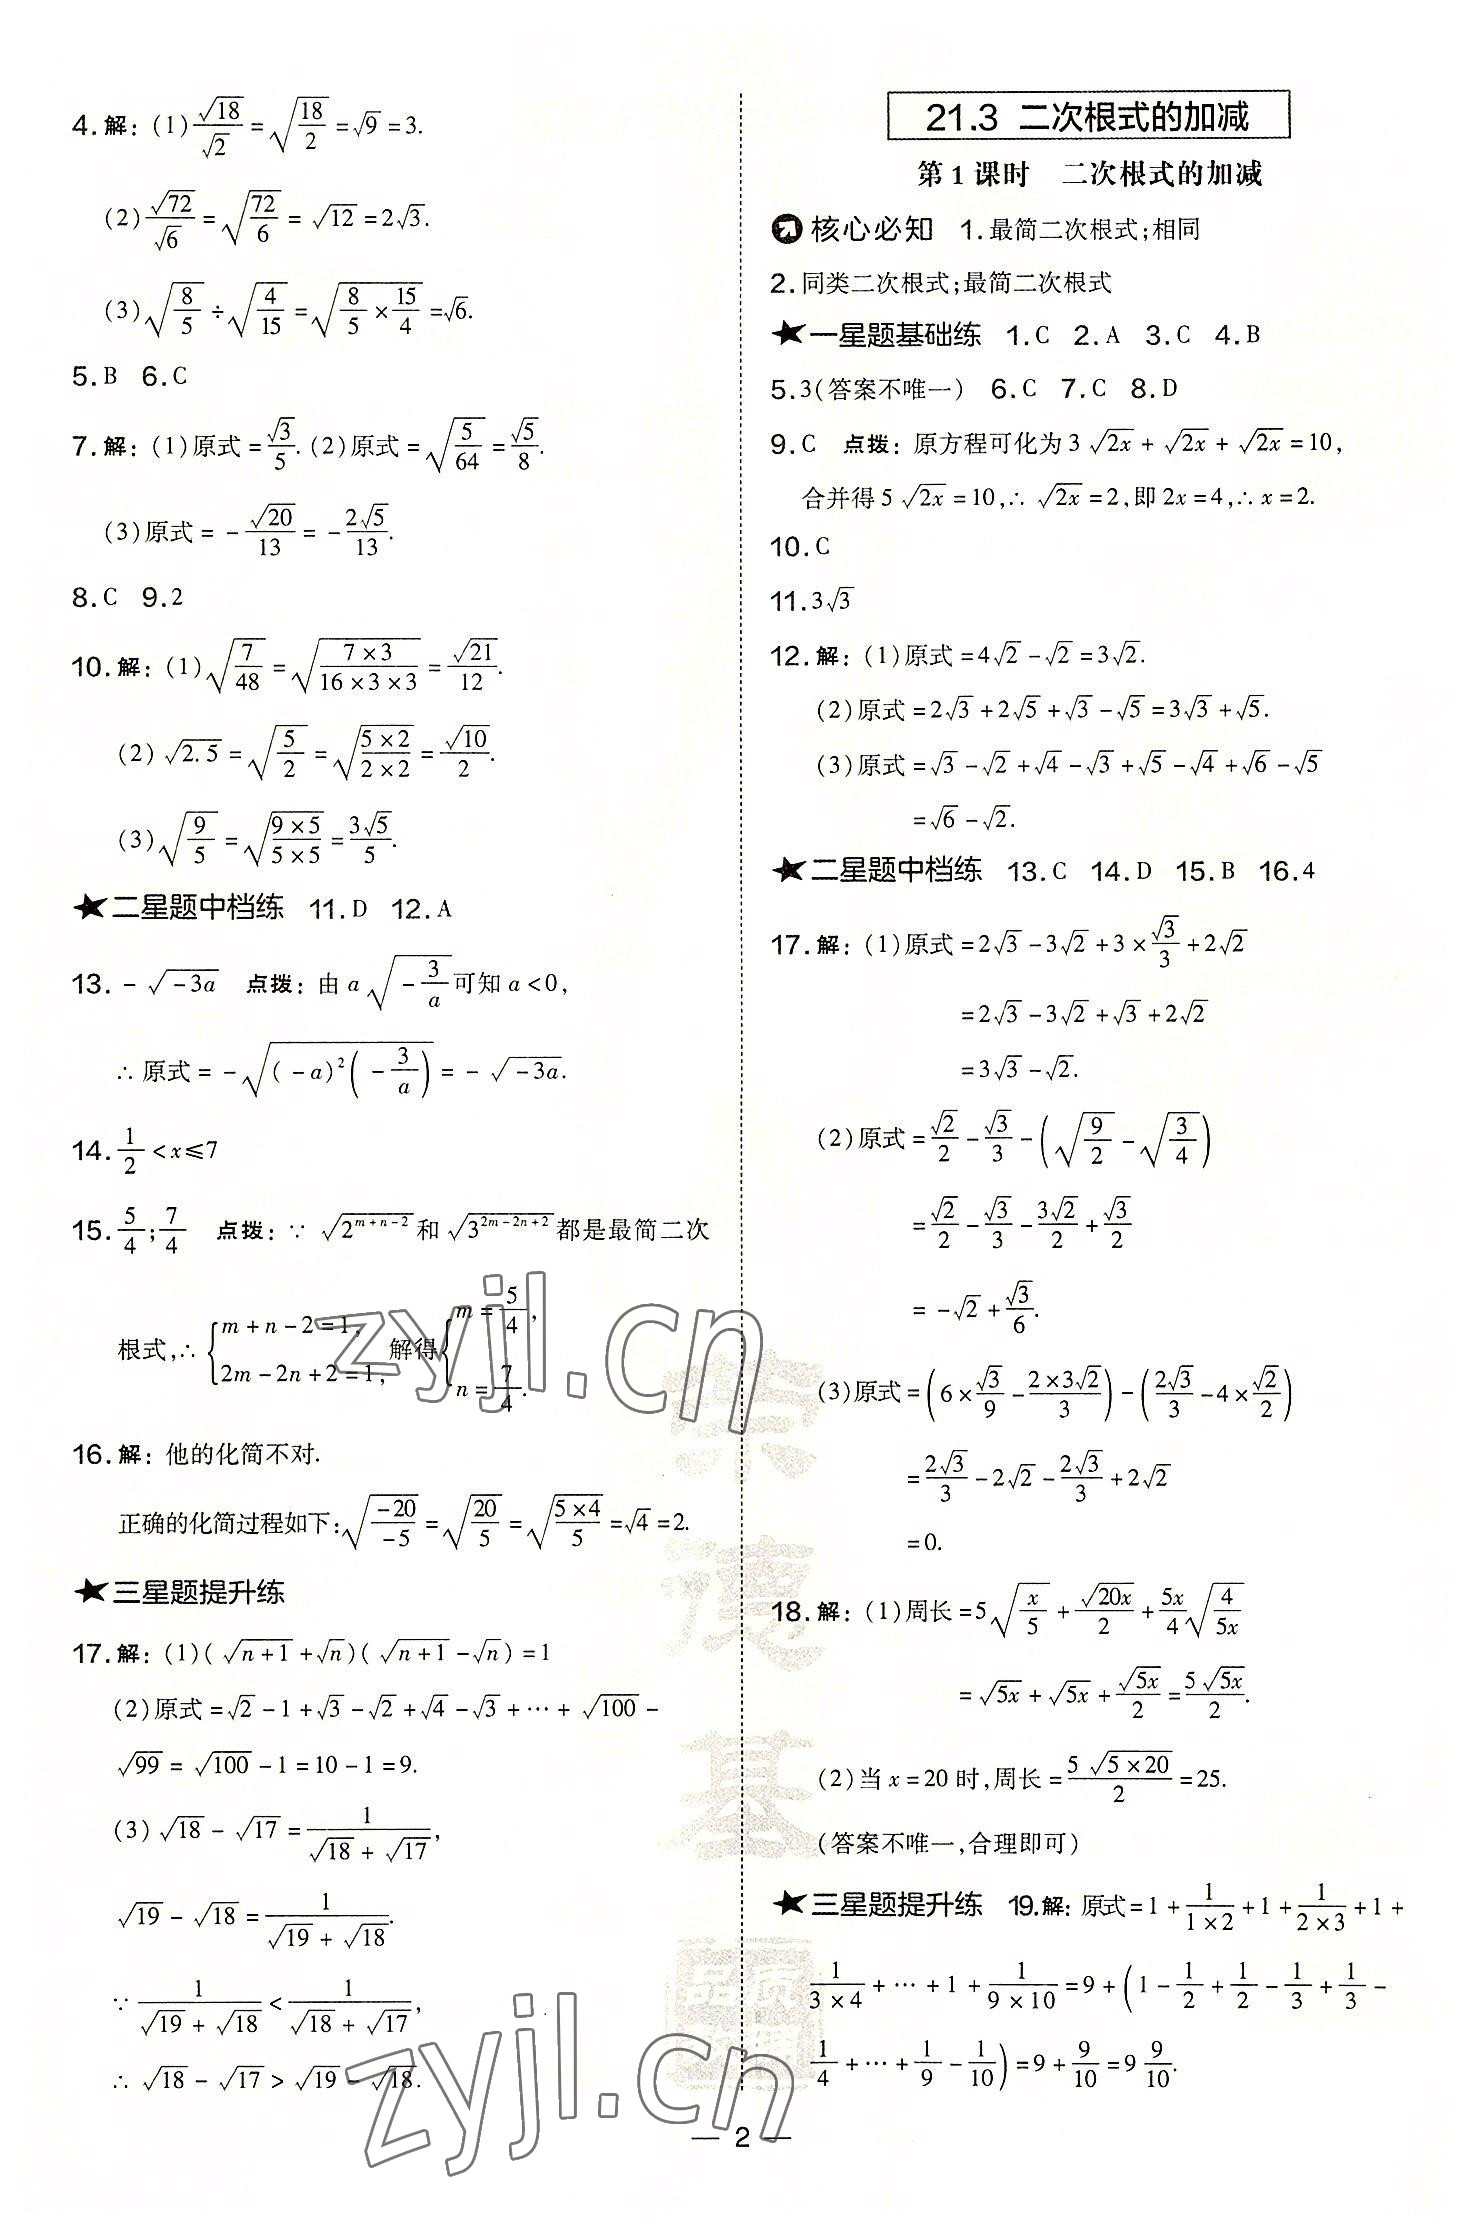 4.解：(1)√18/√2=√(18/2)=√9=3.
(2)√72/√6=√(72/6)=√12=2√3.
(3)√(8/5)÷√(4/15)=√(8/5×15/4)=√6.
5.B 6.C
7.解：(1)原式=√3/5.(2)原式=√(5/64)=√5/8.
(3)原式=-√20/13=-2√5/13.
8.C 9.2
10.解：(1)√(7/48)=√((7×3)/(16×3×3))=√21/12.
(2)√2.5=√(5/2)=√((5×2)/(2×2))=√10/2.
(3)√(9/5)=√((9×5)/(5×5))=3√5/5.
★二星题中档练 11.D 12.A
13.-√(-3a) 点拨：由a√(-3/a)可知a<0，
∴原式=-√((-a)²(-3/a))=-√(-3a).
14.1/2<x≤7
15.5/4;7/4 点拨：∵√(2^(m+n-2))和√(3^(2m-2n+2))都是最简二次
根式，∴{m+n-2=1, 2m-2n+2=1, 解得{m=5/4, n=7/4.
16.解：他的化简不对.
正确的化简过程如下：√(-20/-5)=√(20/5)=√((5×4)/5)=√4=2.
★三星题提升练
17.解：(1)(√(n+1)+√n)(√(n+1)-√n)=1
(2)原式=√2-1+√3-√2+√4-√3+…+√100-
√99=√100-1=10-1=9.
(3)√18-√17=1/(√18+√17),
√19-√18=1/(√19+√18).
∵1/(√19+√18)<1/(√18+√17),
∴√18-√17>√19-√18.
21.3 二次根式的加减
第1课时 二次根式的加减
核心必知 1.最简二次根式；相同
2.同类二次根式；最简二次根式
★一星题基础练 1.C 2.A 3.C 4.B
5.3(答案不唯一) 6.C 7.C 8.D
9.C 点拨：原方程可化为3√(2x)+√(2x)+√(2x)=10，
合并得5√(2x)=10,∴√(2x)=2,即2x=4,∴x=2.
10.C
11.3√3
12.解：(1)原式=4√2-√2=3√2.
(2)原式=2√3+2√5+√3-√5=3√3+√5.
(3)原式=√3-√2+√4-√3+√5-√4+√6-√5
=√6-√2.
★二星题中档练 13.C 14.D 15.B 16.4
17.解：(1)原式=2√3-3√2+3×√3/3+2√2
=2√3-3√2+√3+2√2
=3√3-√2.
(2)原式=√2/2-√3/3-(√(9/2)-√(3/4))
=√2/2-√3/3-3√2/2+√3/2
=-√2+√3/6.
(3)原式=(6×√3/9-(2×3√2)/3)-(2√3/3-4×√2/2)
=2√3/3-2√2-2√3/3+2√2
=0.
18.解：(1)周长=5√(x/5)+√(20x)/2+5x/4√(4/5x)
=√(5x)+√(5x)+√(5x)/2=5√(5x)/2.
(2)当x=20时,周长=5√(5×20)/2=25.
(答案不唯一,合理即可)
★三星题提升练 19.解：原式=1+1/(1×2)+1+1/(2×3)+1+
1/(3×4)+…+1+1/(9×10)=9+(1-1/2+1/2-1/3+1/3-
1/4+…+1/9-1/10)=9+9/10=9 9/10.
— 2 —
zyjl.cn
zyjl.cn